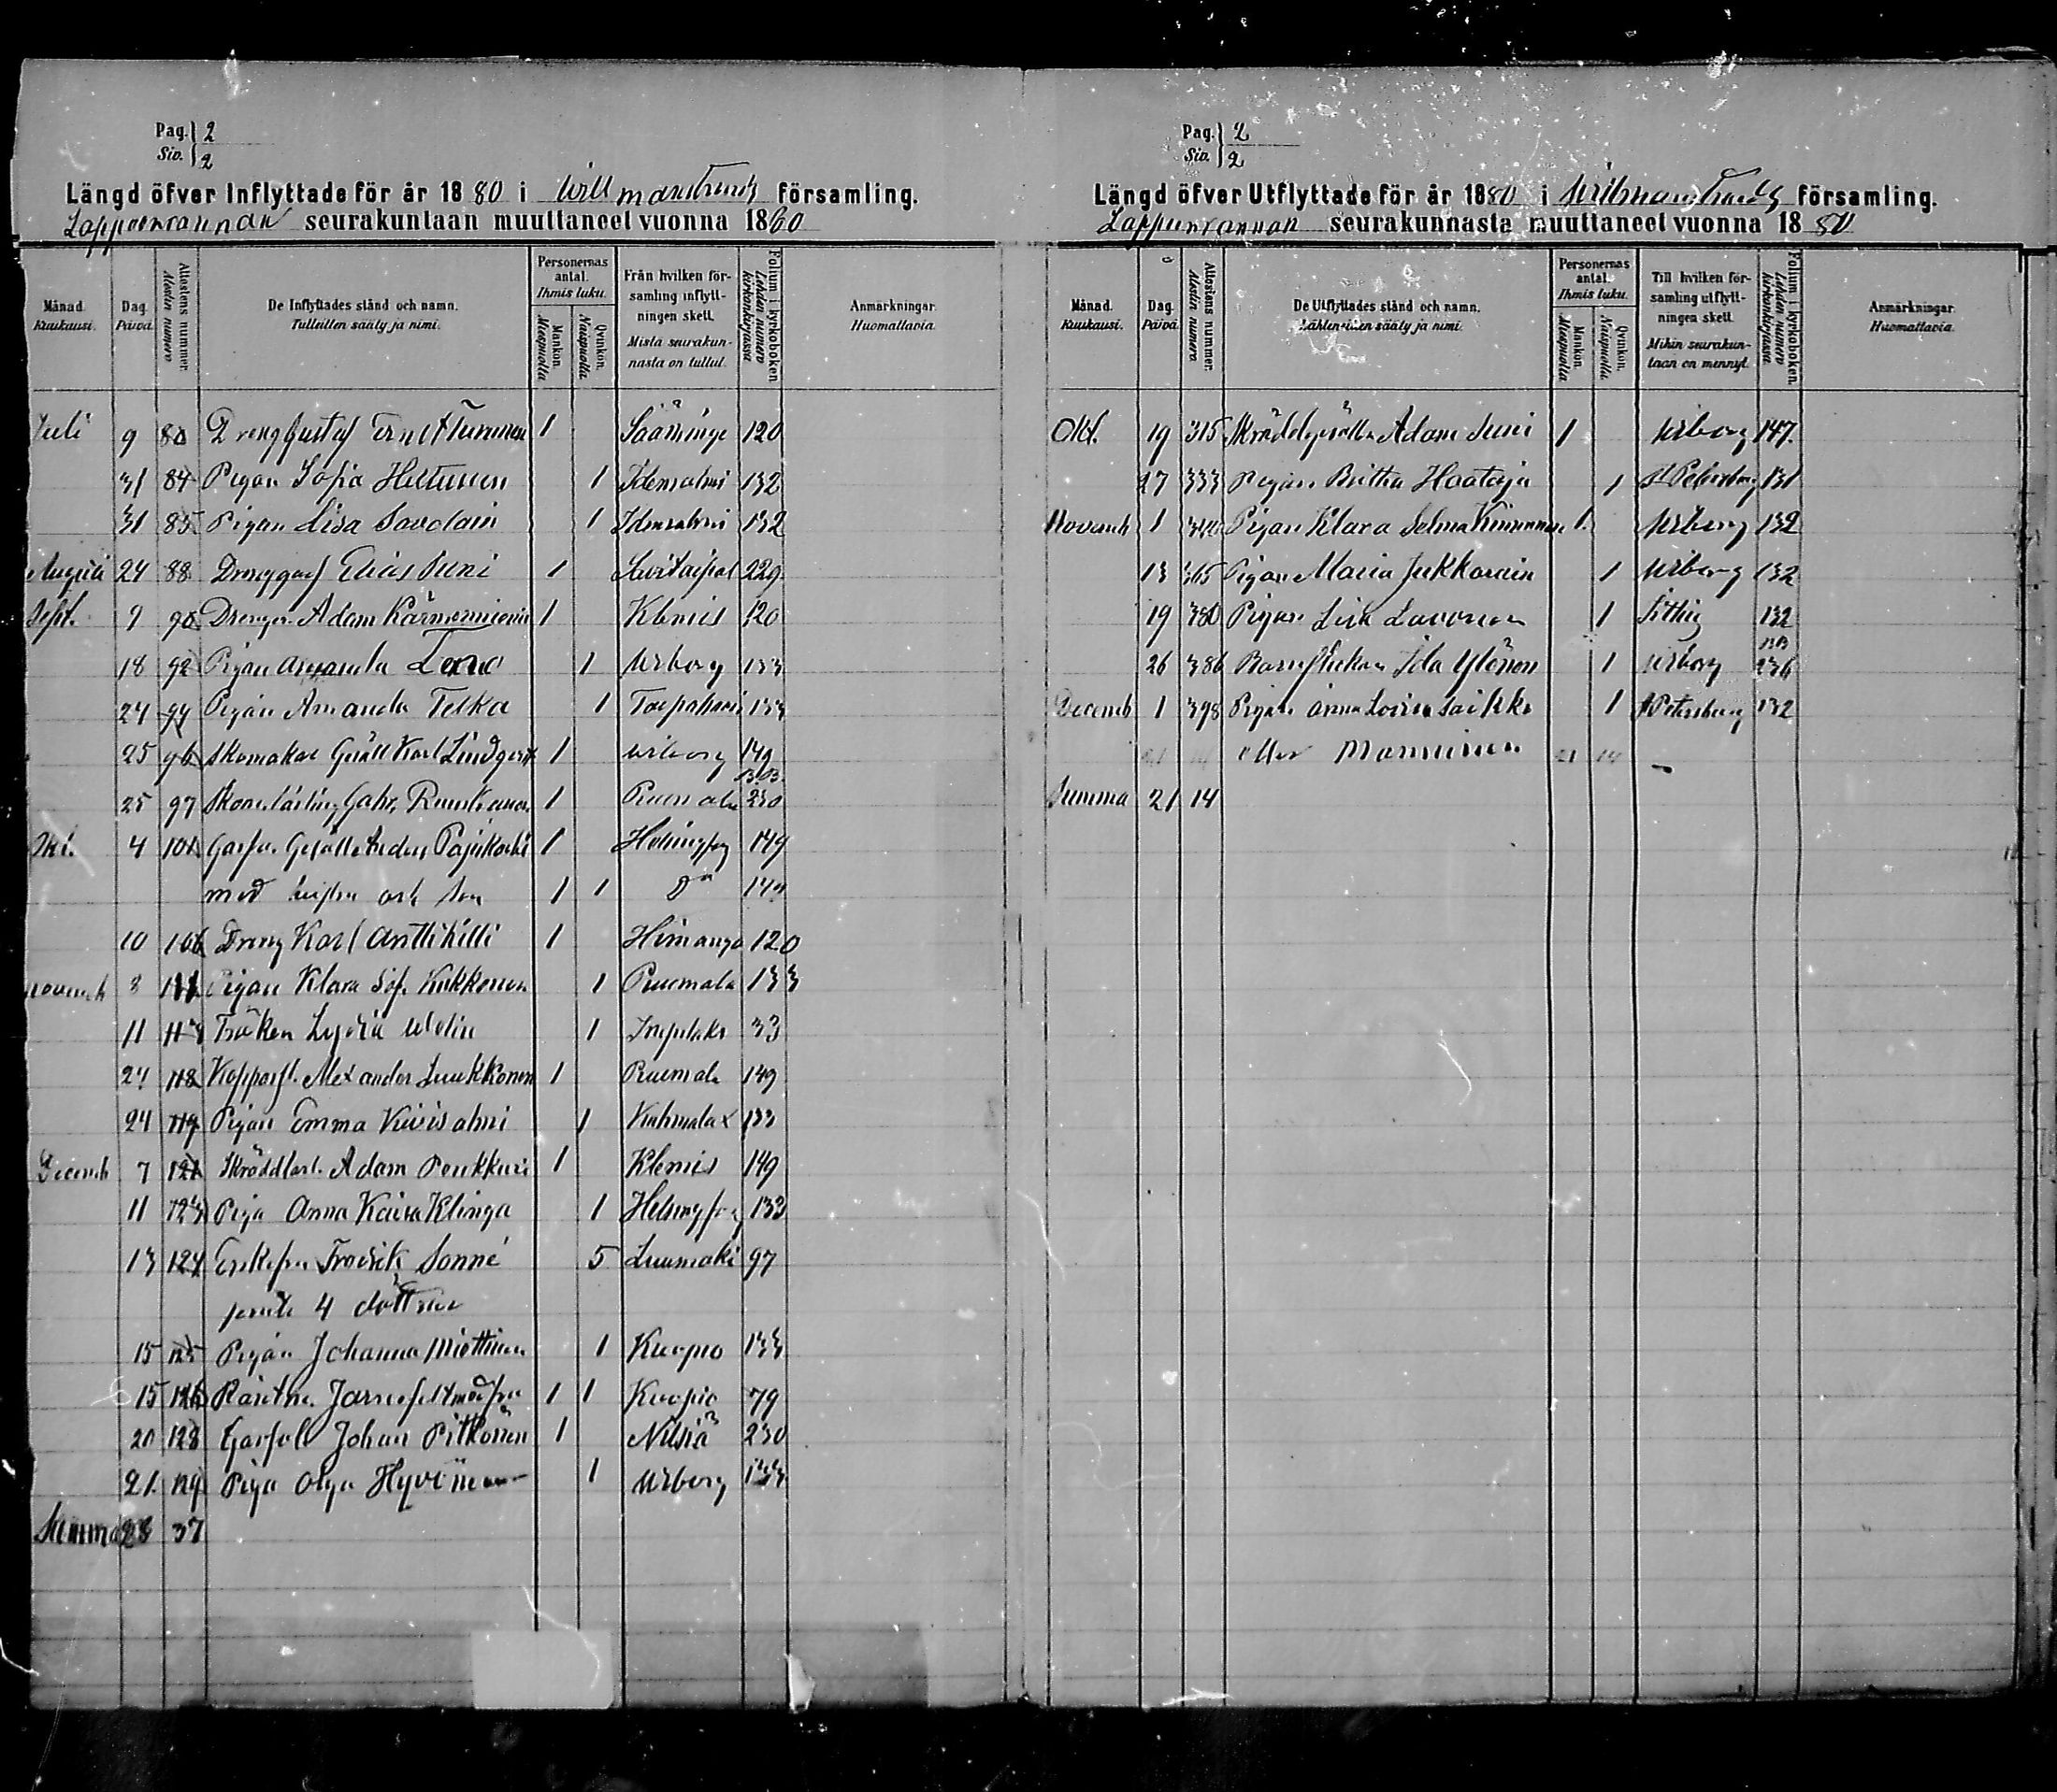 Pag. 2
Siv. 2
Längd öfver Inflyttade för år 1880 i Willmanstrands församling.
Lappeenrannan seurakuntaan muuttaneet vuonna 1880
Månad. Kuukausi. Dag. Päivä. Attestens nummer Atestin numero De Inflyttades stånd och namn. Tulleitten sääty ja nimi. Personernas antal. Ihmis luku. Mankön. Miespuolia Qvinkön. Naispuolia Från hvilken församling inflyttningen skett. Mistä seurakunnasta on tullut. Folium i kyrkoboken Lehden numero kirkonkirjassa Anmärkningar. Huomattavia.
Juli 9 80 Dreng Gustaf Ernst Tuminen 1 Sääminge 120
31 84 Pigan Sofia Huttunen 1 Idensalmi 132
31 85 Pigan Lisa Savolain 1 Idensalmi 132
Augusti 24 88 Elias Suni 1 Savitaipal 229
Sept. 9 90 Drengen Adam Kärmeniemi 1 Klemis 120
18 92 Pigan Amanda 1 Wiborg 133
24 94 Pigan Amanda Telka 1 133
25 96 Skomakar Gesäll Karl Lindqvist 1 Wiborg 149
25 97 Gabr. 1 Ruovalax 230
Okt. 4 101 Anders Pajukoski 1 Helsingfors 149
med hustru och son 1 1 Do 149
10 106 Dreng Karl Anttikilli 1 Himango 120
Novemb 8 111 Pigan Klara Sof. Kukkonen 1 Puumala 133
11 113 Fröken Lydia 1 Impilaks 33
24 118 Alexander Luukkonen 1 Puumala 149
24 119 Pigan Emma Kivisalmi 1 Kuhmalax 133
Decemb 7 121 Adam Poukkuri 1 Klemis 149
11 123 Piga Anna Kaisa Klinga 1 Helsingfors 133
13 124 Enkefru Fredrik Sonné 5 Luumäki 97
jemte 4 döttrar
15 125 Pigan Johanna Miettinen 1 Kuopio 133
15 126 Jarnefelt med fru 1 1 Kuopio 79
20 128 Johan Pitkönen 1 Nilsiä 230
21. 129 Piga Olga Hyvönen 1 Wiborg 133
Summa 28 37
Pag. 2
Siv. 2
Längd öfver Utflyttade för år 1880 i Wilmanstrands församling.
Lappeenrannan seurakunnasta muuttaneet vuonna 1880
Månad. Kuukausi. Dag. Päivä. Attestens nummer. Atestin numero De Utflyttades stånd och namn. Lähteneitten sääty ja nimi. Personernas antal. Ihmis luku. Mankön. Miespuolia Qvinkön. Naispuolia Till hvilken församling utflyttningen skett. Mihin seurakuntaan on mennyt. Folium i kyrkoboken. Lehden numero kirkonkirjassa. Anmärkningar. Huomattavia.
Okt. 19 315 Skräddgesällen Adam Suni 1 Wiborg 147.
27 333 Pigan Britha Haataja 1 St Petersborg 131
Novemb 1 340 Pigan Klara Selma Kinnunen 1. Wiborg 132
13 365 Pigan Maria Jukkarain 1 Wiborg 132
19 380 Pigan Lisa 1 132
26 386 Ida Ylönen 1 Wiborg 236
Decemb 1 398 Pigan Anna Lovisa Saikko 1 St Petersburg 132
eller Manninen 21 14
Summa 21 14